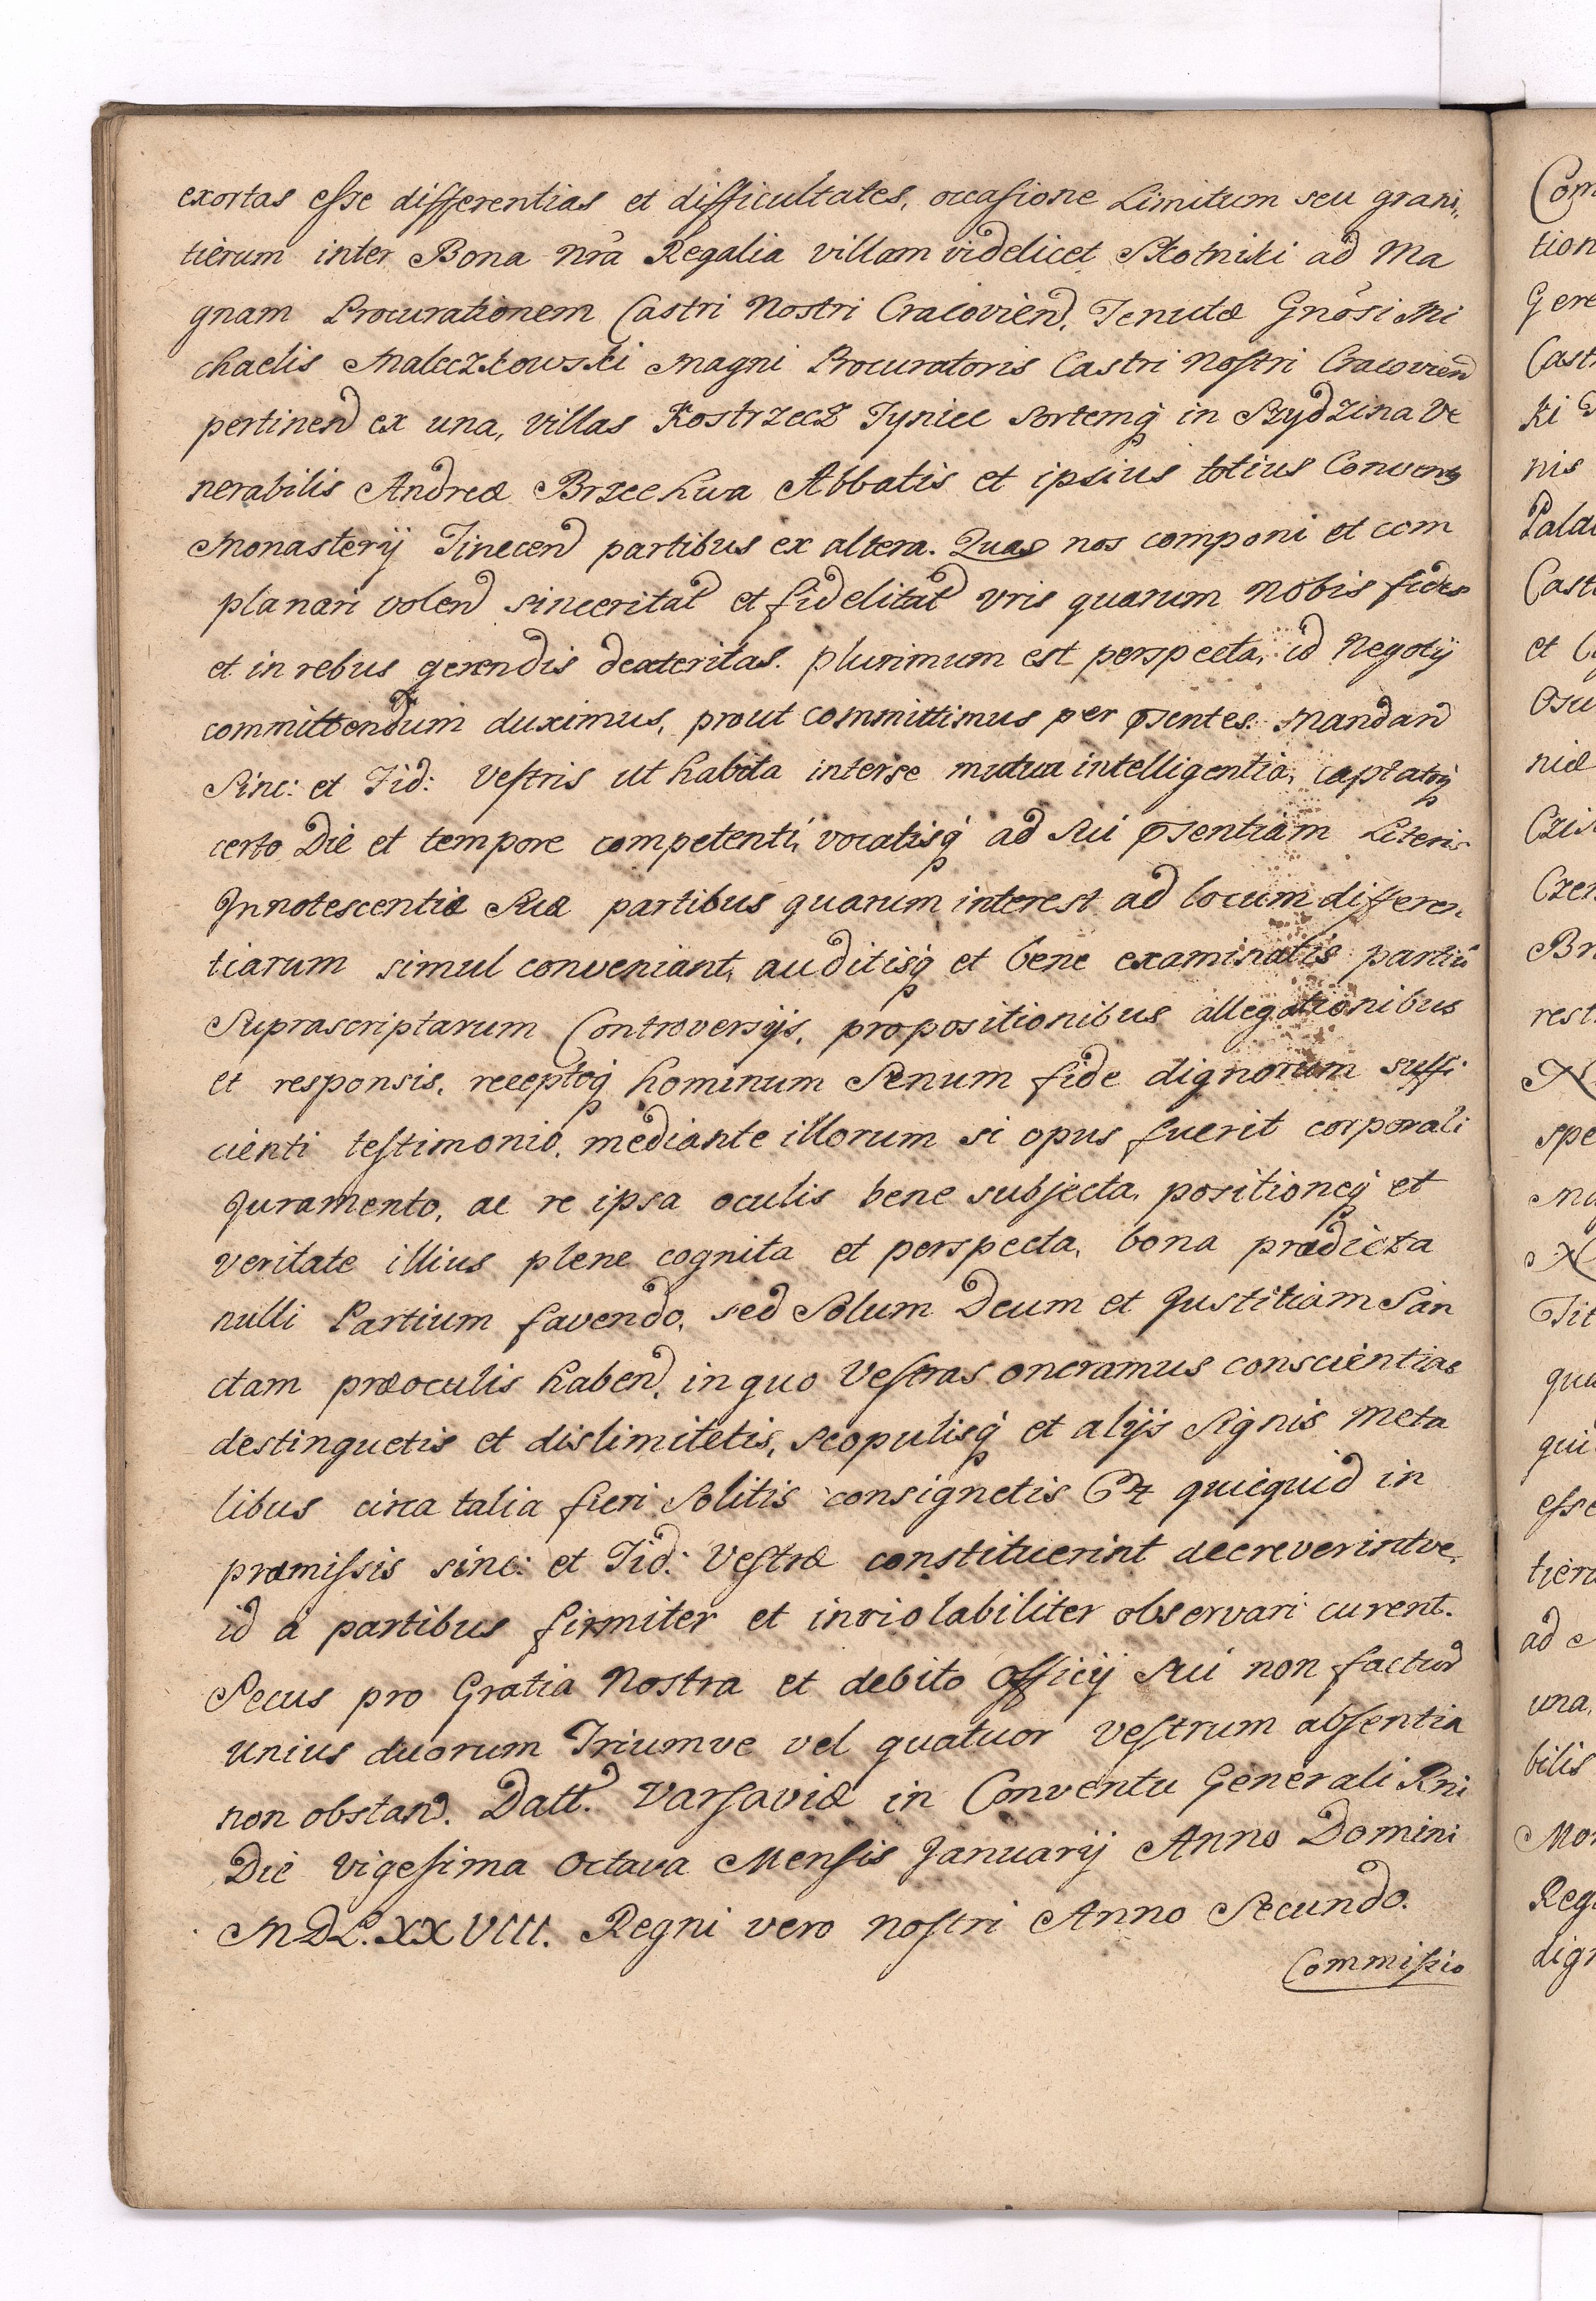 exortas esse differentias et difficultates, occasione Limitum seu grani„
tierum inter Bona nr̃a Regalia villam videlicet Skotniki ad Ma
gnam Procurationem Castri Nostri Cracovien̄, Tenutæ Gnõsi Mi
chaelis Maleczkowski Magni Procuratoris Castri Nostri Cracovien̄
pertinen̄ ex una, villas Kostrzecz Tyniec Sortemq̃ in Szydzina Ve
nerabilis Andreæ Brzechwa Abbatis et ipsius totius Convent9
Monasterij Tinecen̄ partibus ex altera. Quas nos componi et com
planari volen̄ sinceritat̄ et fidelitat̄ Vris quarum nobis fides
et in rebus gerendis dexteritas plurimum est perspecta, id Negotij
committendum duximus, prout committimus per p̃sentes. Mandan̄
Sinc: et Fid: Vestris ut habita interse mutua intelligentia, captatoq̃
certo Die et tempore competenti, vocatisq̃ ad sui p̃sentiam Literis
Innotescentiæ Suæ partibus quarum interest ad locum differen„
tiarum simul conveniant, auditisq̃ et bene examinatis partiū
Suprascriptarum Controversijs, propositionibus allegationibus
et responsis, receptoq̃ hominum Senum fide dignorum suffi
cienti testimonio, mediante illorum si opus fuerit corporali
Juramento, ac re ipsa oculis bene subjecta, positioneq̃ et
veritate illius plene cognita et perspecta, bona prædicta
nulli Partium favendo, sed Solum Deum et Justitiam San
ctam præoculis haben̄, in quo Vestras oneramus conscientias
destinguetis et dislimitetis, scopulisq̃ et alijs Signis Meta
libus circa talia fieri Solitis consignetis Et quicquid in
præmissis sinc: et Fid: Vestræ constituerint decreverintve,
id á partibus firmiter et inviolabiliter observari curent.
Secus pro Gratia Nostra et debito Officij Sui non factur̄
Unius duorum Triumve vel quatuor Vestrum absentia
non obstan̄. Datt. Varsaviæ in Conventu Generali Rni
Die Vigesima Octava Mensis Januarij Anno Domini
MDL.XXVIII. Regni vero nostri Anno Secundo.
Commissio